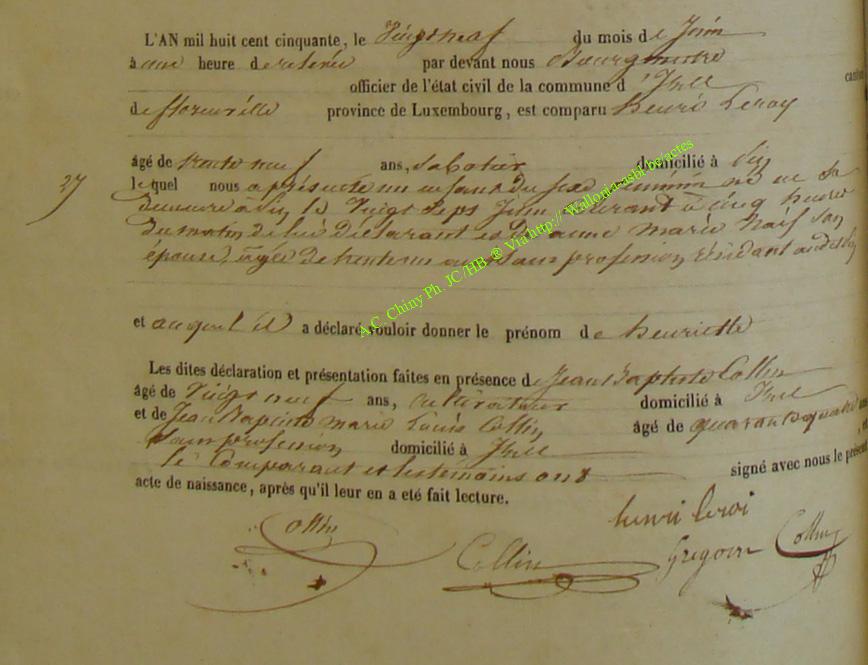 L'AN mil huit cent cinquante, le Vingt neuf du mois de Juin
à une heure de relevée par devant nous Bourgmestre
officier de l'état civil de la commune d' Izel canton
de florenville province de Luxembourg, est comparu henri Leroy
âgé de trente neuf ans, Sabotier domicilié à
27
le quel nous a présenté un enfant du sexe féminin né en sa
demeure à le Vingt Sept Juin courant à cinq heures
du matin de lui déclarant et de dame marie son
épouse, agée de trente ans Sans profession, résidant
et auquel il a déclaré vouloir donner le prénom de henriette
Les dites déclaration et présentation faites en présence de Jean Baptiste Collin
âgé de Vingt neuf ans, cultivateur domicilié à Izel
et de Jean Baptiste marie Louis Collin âgé de quarante quatre ans
Sans profession domicilié à Izel
le Comparant et les témoins ont signé avec nous le présent
acte de naissance, après qu'il leur en a été fait lecture.
henri leroi
Collin
Collin Gregoire Collin
A.C. Chiny Ph. JC/HB ® Via http:// Wallonia-asbl.be/actes